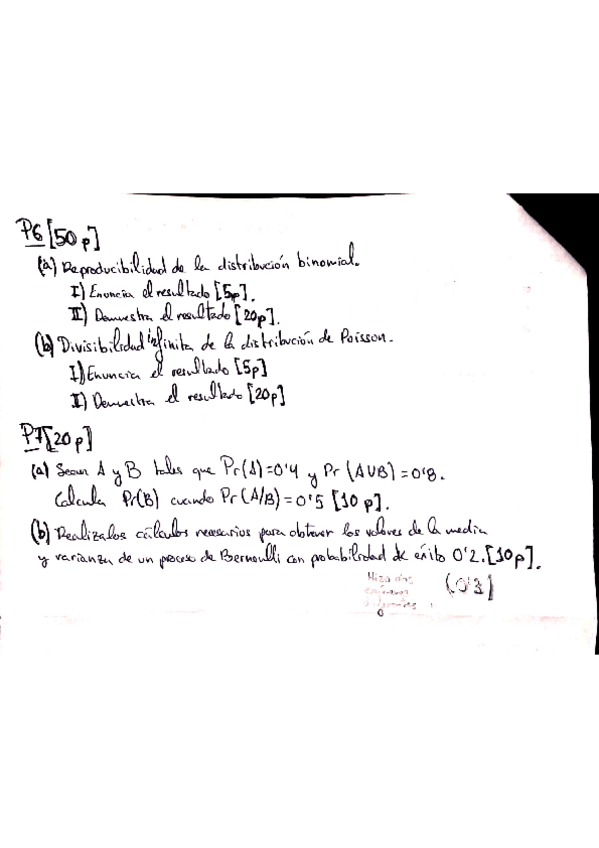 P6 [50 p]
(a) Reproducibilidad de la distribución binomial.
I) Enuncia el resultado [5p].
II) Demuestra el resultado [20p].
(b) Divisibilidad infinita de la distribución de Poisson.
I) Enuncia el resultado [5p]
II) Demuestra el resultado [20p]
P7 [20 p]
(a) Sean A y B tales que Pr(A)=0'4 y Pr(A∪B)=0'8.
Calcula Pr(B) cuando Pr(A/B)=0'5 [10 p].
(b) Realiza los cálculos necesarios para obtener los valores de la media
y varianza de un proceso de Bernoulli con probabilidad de éxito 0'2. [10p].
Hizo dos (0'3)
exámenes
diferentes